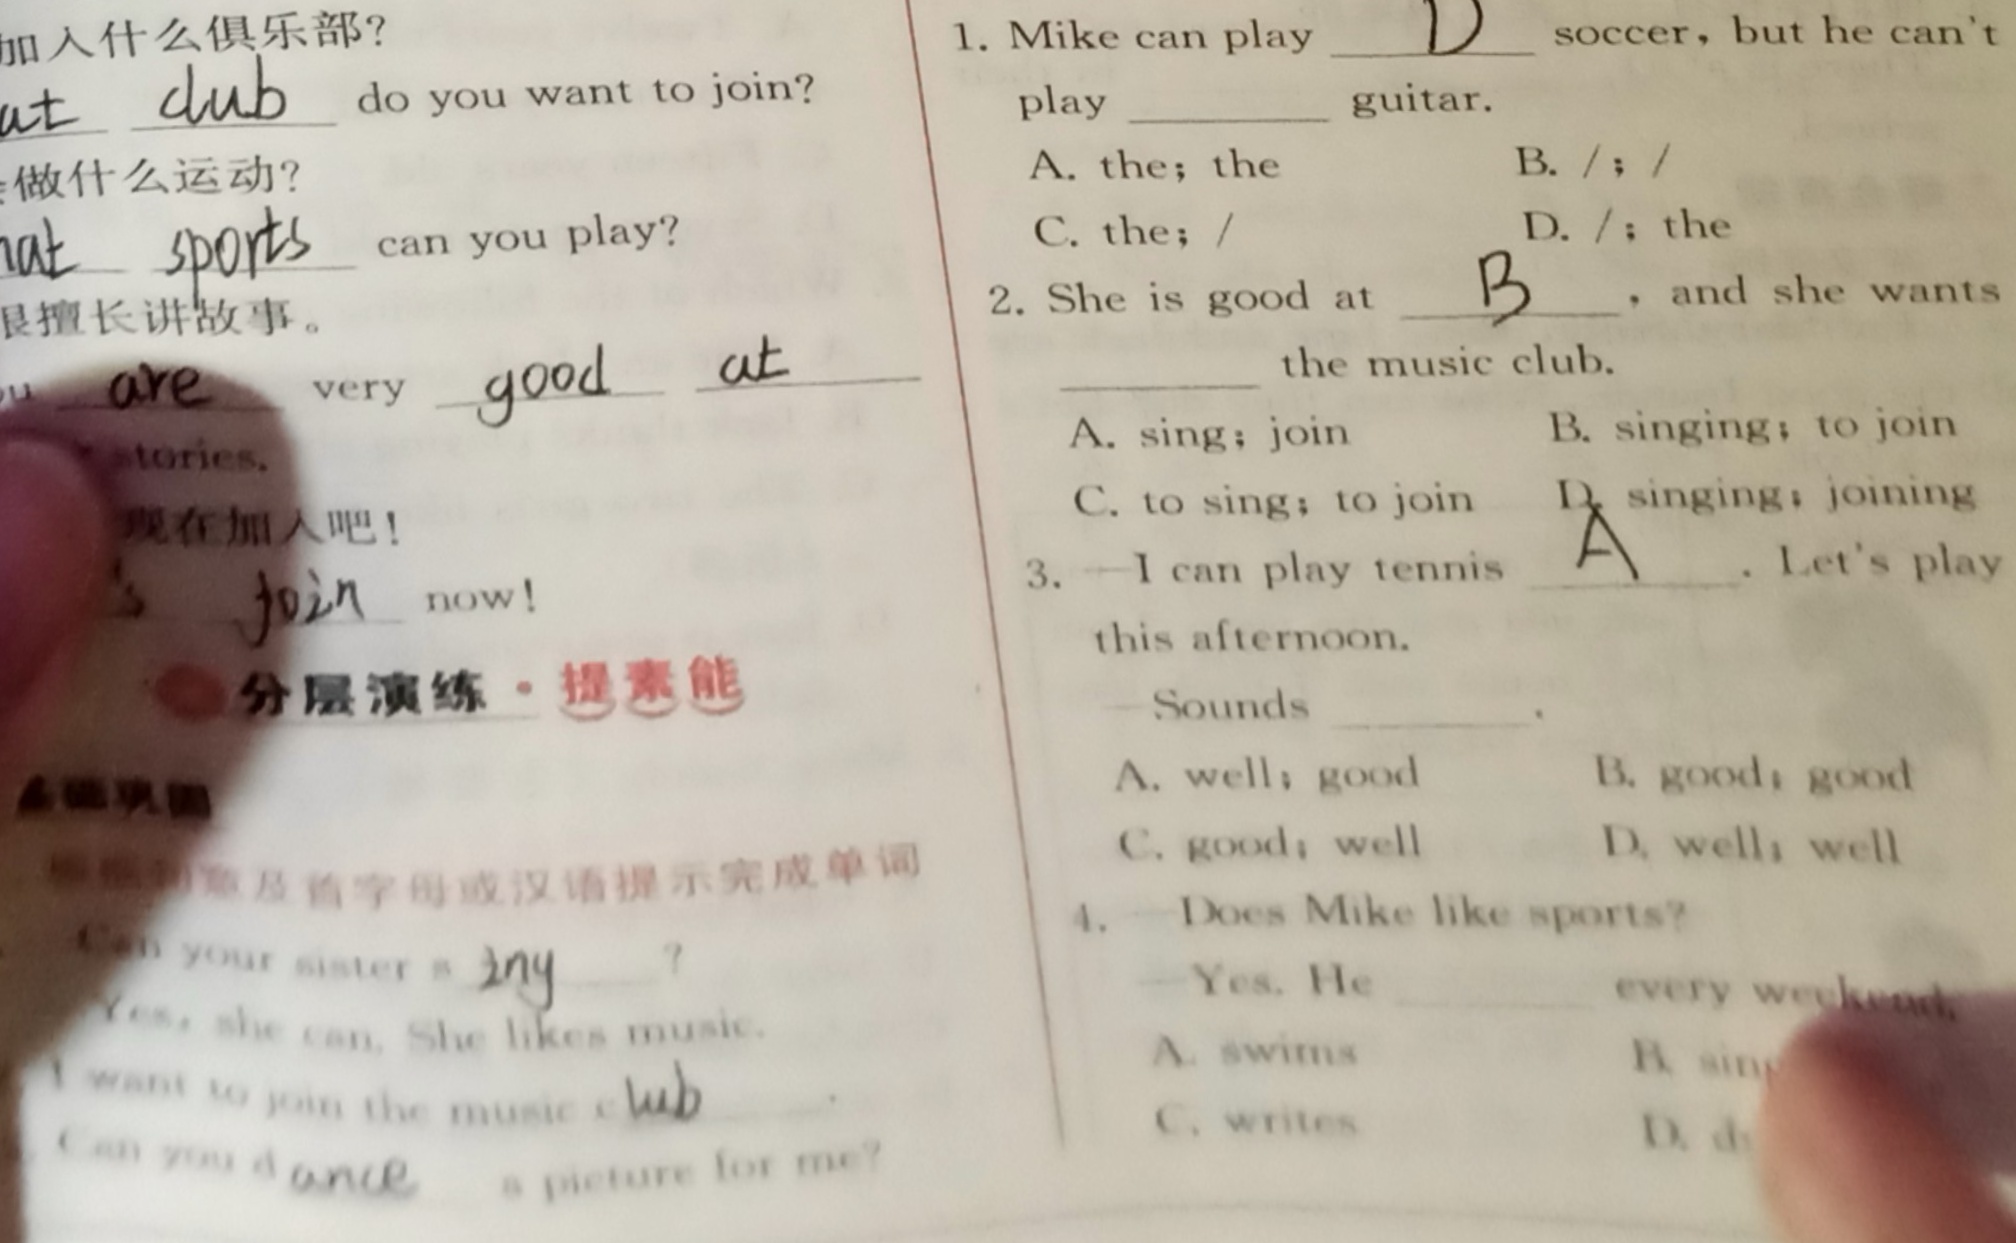 加入什么俱乐部?
at club do you want to join?
做什么运动?
hat sports can you play?
很擅长讲故事。
ou are very good at
stories.
现在加入吧!
's join now!
分层演练·提素能
基础巩固
根据句意及首字母或汉语提示完成单词
Can your sister s iny ?
Yes, she can. She likes music.
I want to join the music c lub .
Can you d ance a picture for me?
1. Mike can play D soccer, but he can't
play guitar.
A. the; the B. /; /
C. the; / D. /; the
2. She is good at B , and she wants
the music club.
A. sing; join B. singing; to join
C. to sing; to join D. singing; joining
3. —I can play tennis A . Let's play
this afternoon.
—Sounds .
A. well; good B. good; good
C. good; well D. well; well
4. —Does Mike like sports?
—Yes. He every weekend.
A. swims B. sing
C. writes D. d